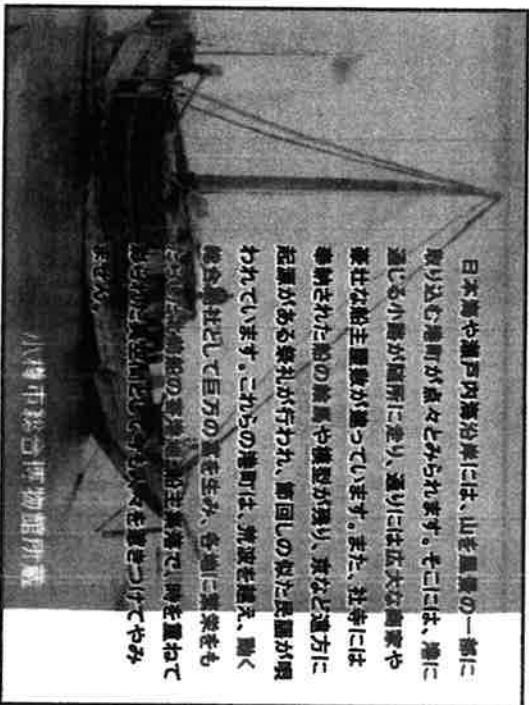 日本海や瀬戸内海沿岸には、山を風景の一部に
取り込む港町が点々とみられます。そこには、港に
通じる小路が随所に走り、通りには広大な商家や
豪壮な船主屋敷が建っています。また、社寺には
奉納された船の絵馬や模型が残り、京など遠方に
起源がある祭礼が行われ、節回しの似た民謡が唄
われています。これらの港町は、荒波を越え、動く
総合商社として巨万の富を生み、各地に繁栄をも
たらした北前船の寄港地・船主集落で、時を重ねて
として今も人々を惹きつけてやみ
ません。
小樽市総合博物館所蔵